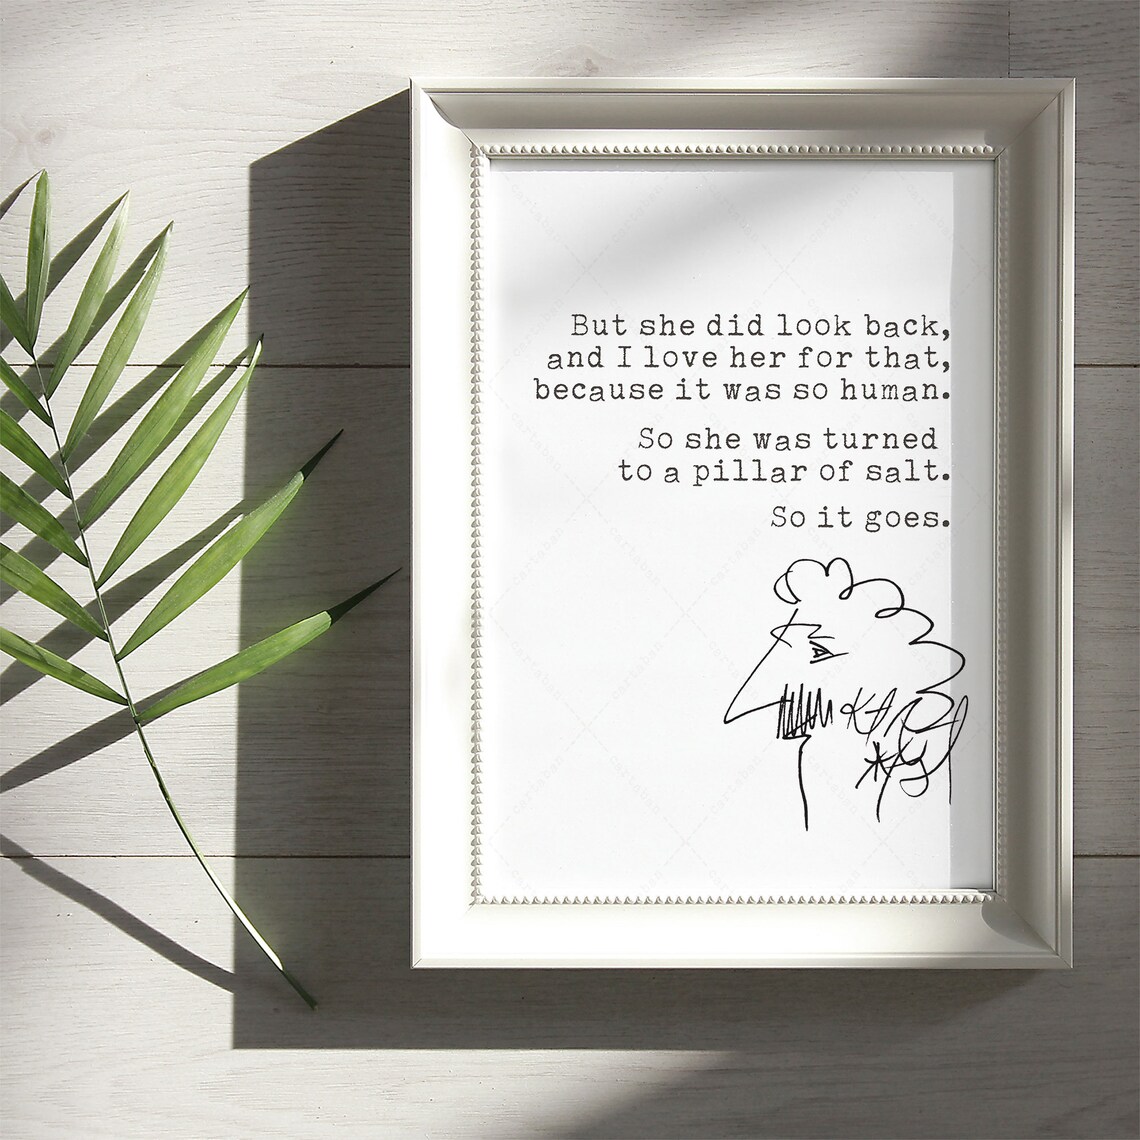 But she did look back,
and I love her for that,
because it was so human.
So she was turned
to a pillar of salt.
So it goes.